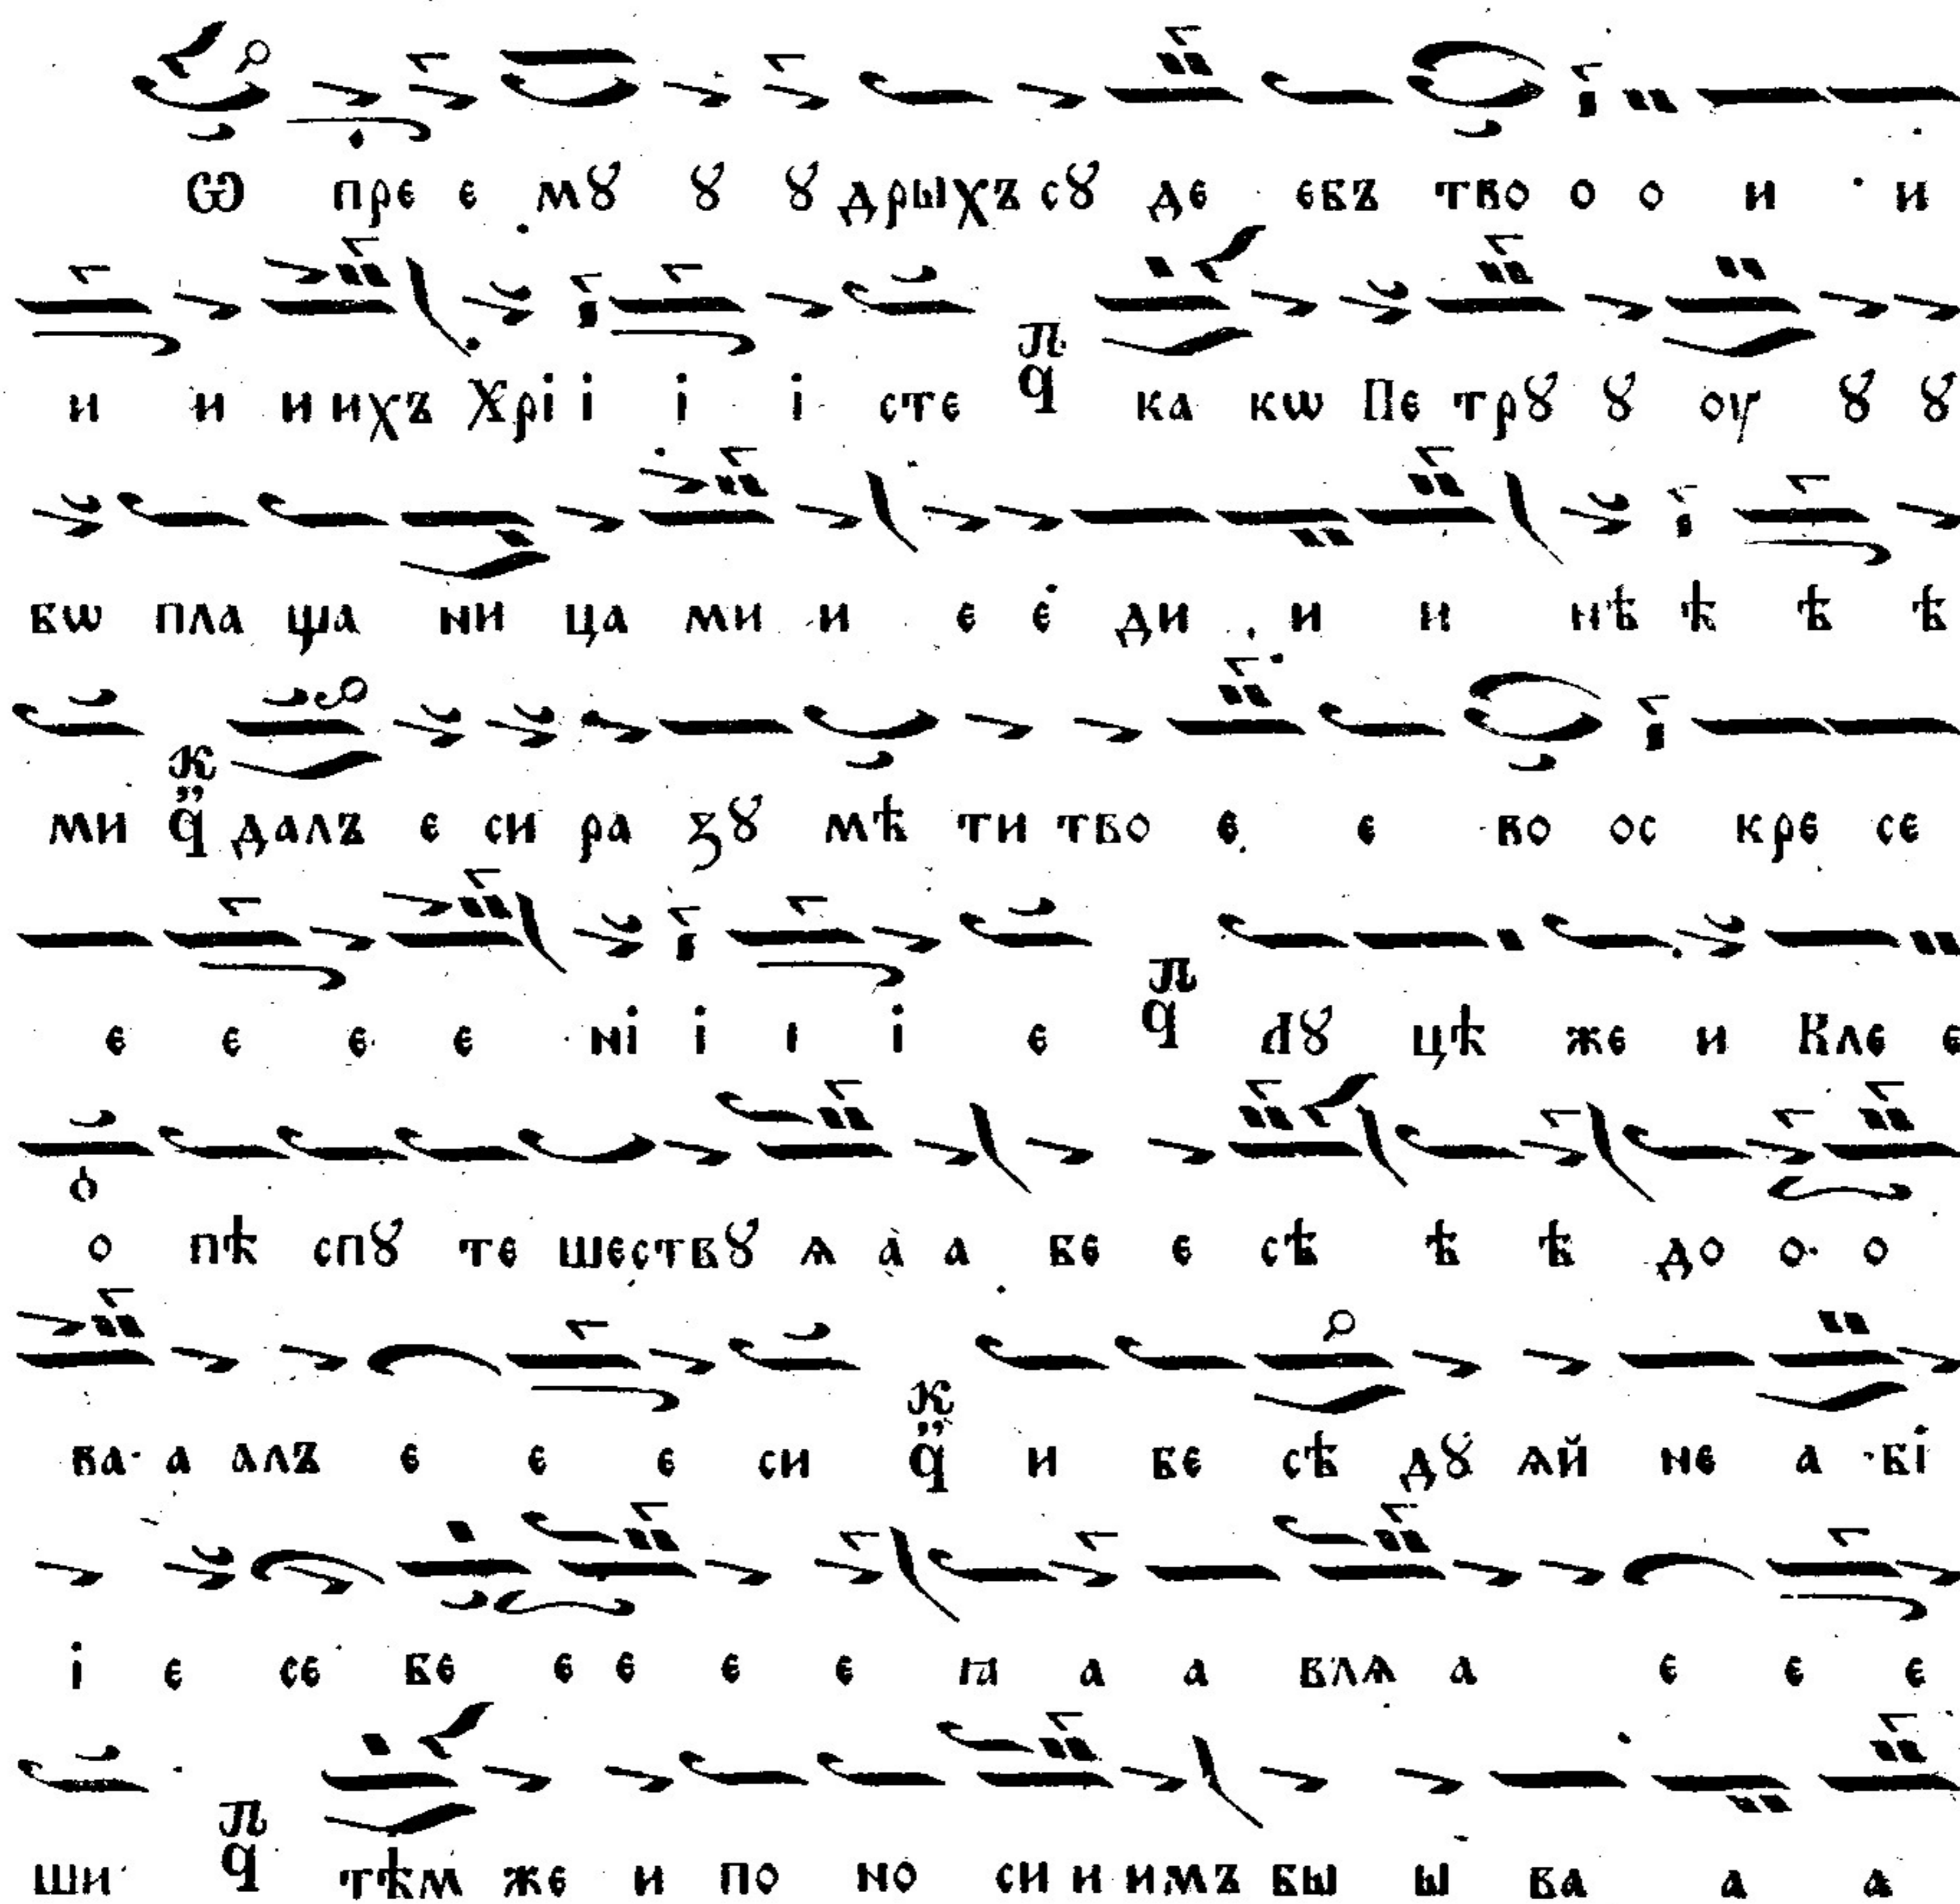 Ѡ пре е мꙋ ꙋ ꙋ дрыхъ сꙋ де ебъ тво о о и и
и и и ихъ Хрі і і і сте п҃ q ка кѡ Пе трꙋ ꙋ оу ꙋ ꙋ
бѡ пла ща ни ца ми и е е ди и и нѣ ѣ ѣ ѣ
ми к q далъ е си ра зꙋ мѣ ти тво е е во ос кре се
е е е е ні і і і е п q Лꙋ цѣ же и Кле е
о пѣ спꙋ те шествꙋ ѧ а а бе е сѣ ѣ ѣ до о о
ва а алъ е е е си к q и бе сѣ дꙋ ѧй не а бі
і е се бе е е е е ꙗ а а влѧ а е е е
ши п q тѣм же и по но си и имъ бы ы ва а а